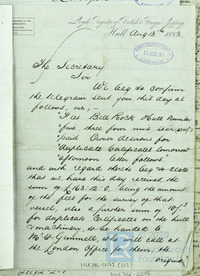 Lloyd's Register of British & Foreign Shipping
Hull Aug 13th 1883
The Secretary
Sir
We beg to confirm
the telegram sent you this day at
follows, viz;—
"Bill Rock Hull Number
five three four nine
said Owner desirous
duplicate Certificates tomorrow
afternoon letter follows"
and with regard thereto beg to state
that we have this day received the
sum of £163.12.0, being the amount
of the fees for the survey of that
vessel, also a further sum of 10/-
for duplicate Certificates on the hull
& machinery, to be handed to
Mr Gemmell, who will call at
the London Office for them, the
original